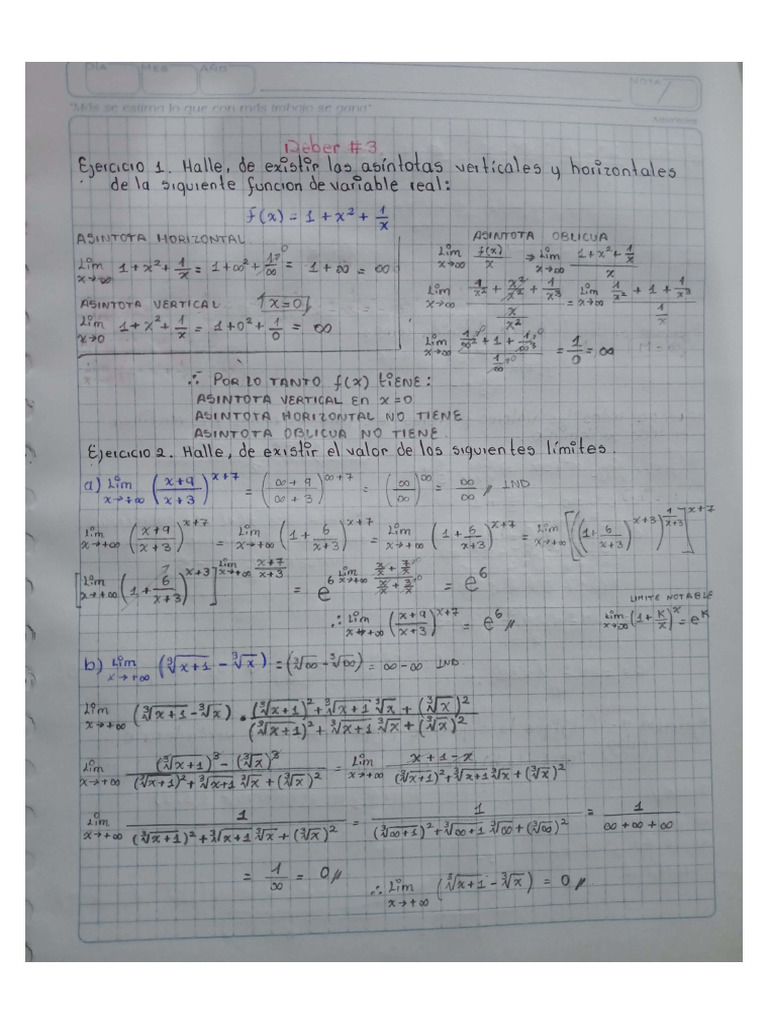 DÍA MES AÑO
NOTA
"Más se estima lo que con más trabajo se gana"
Deber #3
Ejercicio 1. Halle, de existir las asíntotas verticales y horizontales
de la siguiente funcion de variable real:
f(x) = 1 + x² + 1/x
ASINTOTA HORIZONTAL
Lim x→∞ 1 + x² + 1/x = 1 + ∞² + 1/∞ = 1 + ∞ = ∞
ASINTOTA VERTICAL [x=0]
Lim x→0 1 + x² + 1/x = 1 + 0² + 1/0 = ∞
ASINTOTA OBLICUA
Lim x→∞ f(x)/x ⇒ Lim x→∞ (1 + x² + 1/x)/x
Lim x→∞ (1/x² + x²/x² + 1/x³)/(x/x²) = Lim x→∞ (1/x² + 1 + 1/x³)/(1/x)
Lim x→∞ (1/∞² + 1 + 1/∞³)/(1/∞) = 1/0 = ∞
∴ POR LO TANTO f(x) TIENE:
ASINTOTA VERTICAL EN x=0
ASINTOTA HORIZONTAL NO TIENE
ASINTOTA OBLICUA NO TIENE.
Ejercicio 2. Halle, de existir el valor de los siguientes límites.
a) Lim x→+∞ ((x+9)/(x+3))^(x+7) = ((∞+9)/(∞+3))^(∞+7) = (∞/∞)^∞ = ∞/∞ // IND
Lim x→+∞ ((x+9)/(x+3))^(x+7) = Lim x→+∞ (1 + 6/(x+3))^(x+7) = Lim x→+∞ (1 + 6/(x+3))^(x+7) = Lim x→+∞ [((1 + 6/(x+3))^(x+3))^(1/(x+3))]^(x+7)
[Lim x→+∞ (1 + 6/(x+3))^(x+3)]^(Lim x→+∞ (x+7)/(x+3)) = e^(6 Lim x→+∞ (x/x + 7/x)/(x/x + 3/x)) = e⁶
LIMITE NOTABLE
Lim x→∞ (1 + K/x)^x = e^K
∴ Lim x→+∞ ((x+9)/(x+3))^(x+7) = e⁶ //
b) Lim x→+∞ (∛(x+1) - ∛x) = (∛∞ - ∛∞) = ∞ - ∞ IND.
Lim x→+∞ (∛(x+1) - ∛x) • ((∛(x+1))² + ∛(x+1) ∛x + (∛x)²)/((∛(x+1))² + ∛(x+1) ∛x + (∛x)²)
Lim x→+∞ ((∛(x+1))³ - (∛x)³)/((∛(x+1))² + ∛(x+1) ∛x + (∛x)²) = Lim x→+∞ (x+1-x)/((∛(x+1))² + ∛(x+1) ∛x + (∛x)²)
Lim x→+∞ 1/((∛(x+1))² + ∛(x+1) ∛x + (∛x)²) = 1/((∛(∞+1))² + ∛(∞+1) ∛∞ + (∛∞)²) = 1/(∞+∞+∞)
= 1/∞ = 0 //
∴ Lim x→+∞ (∛(x+1) - ∛x) = 0 //